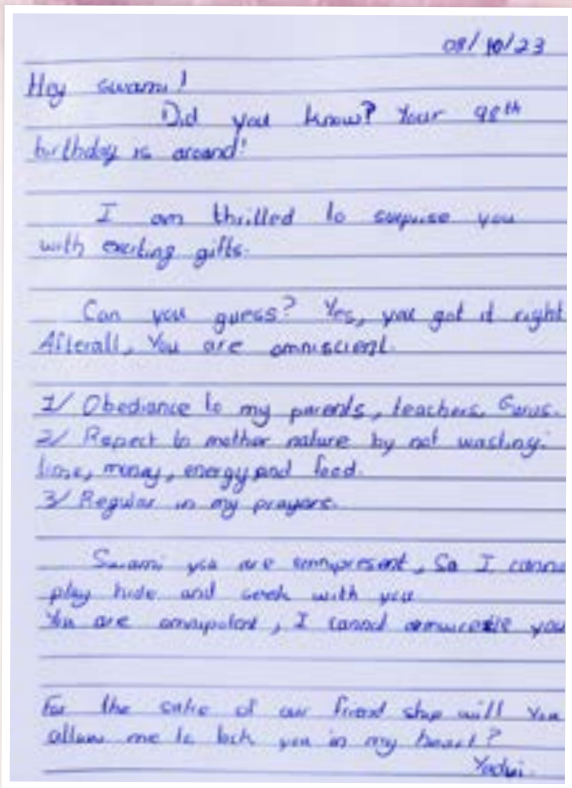 08/10/23
Hey Swami!
Did you know? Your 98th
birthday is around!
I am thrilled to surprise you
with exciting gifts.
Can you guess? Yes, you got it right
Afterall, You are omniscient.
1/ Obediance to my parents, teachers, Gurus.
2/ Repect to mother nature by not wasting
time, money, energy and food.
3/ Regular in my prayers.
Swami you are omnipresent, So I canno
play hide and seek with you
You are omnipotent, I cannot you
For the sake of our friend ship will You
allow me to lock you in my heart?